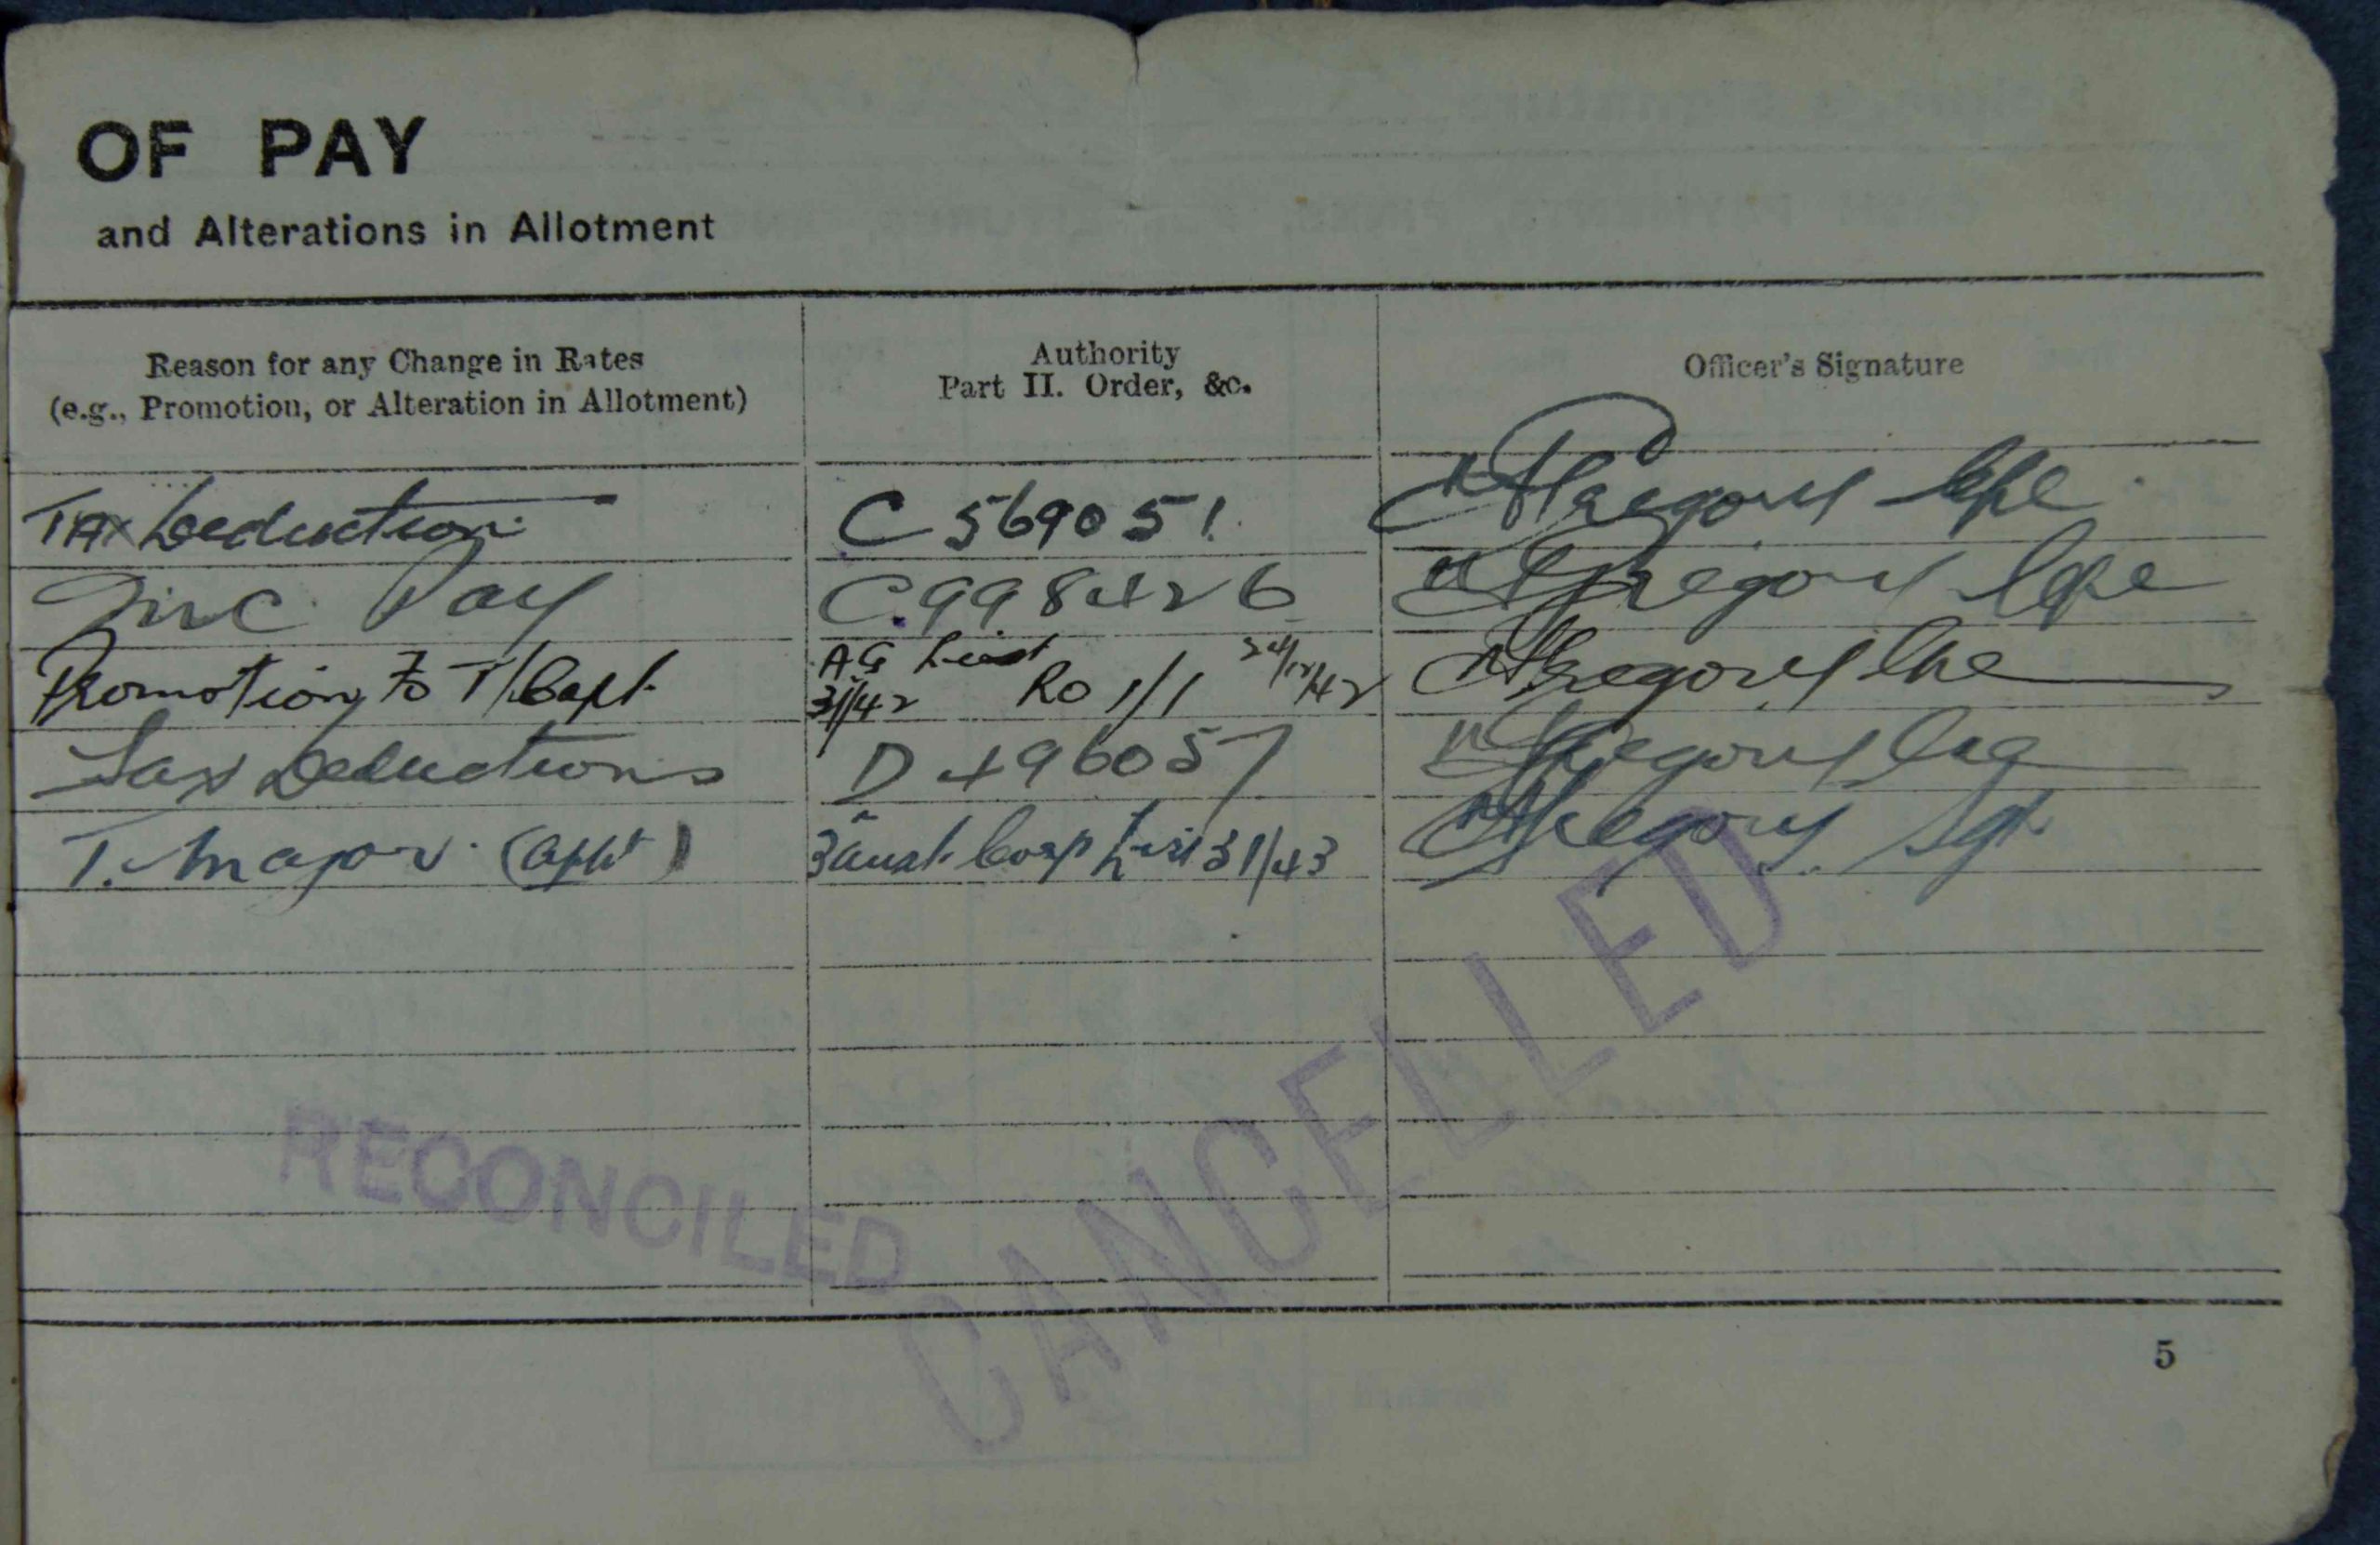 OF PAY
and Alterations in Allotment
Reason for any Change in Rates
(e.g., Promotion, or Alteration in Allotment)
Authority
Part II. Order, &c.
Officer's Signature
Tax Deduction C569051 Gregory Cpl
Inc Pay C.998426 Gregory Cpl
Promotion to T/Capt. AG List 31/42 RO 1/1 24/12/42 Gregory
Tax Deductions D496057 Gregory
T. Major (appt) 3 Aust Corp List 31/43 Gregory Sgt
RECONCILED
CANCELLED
5